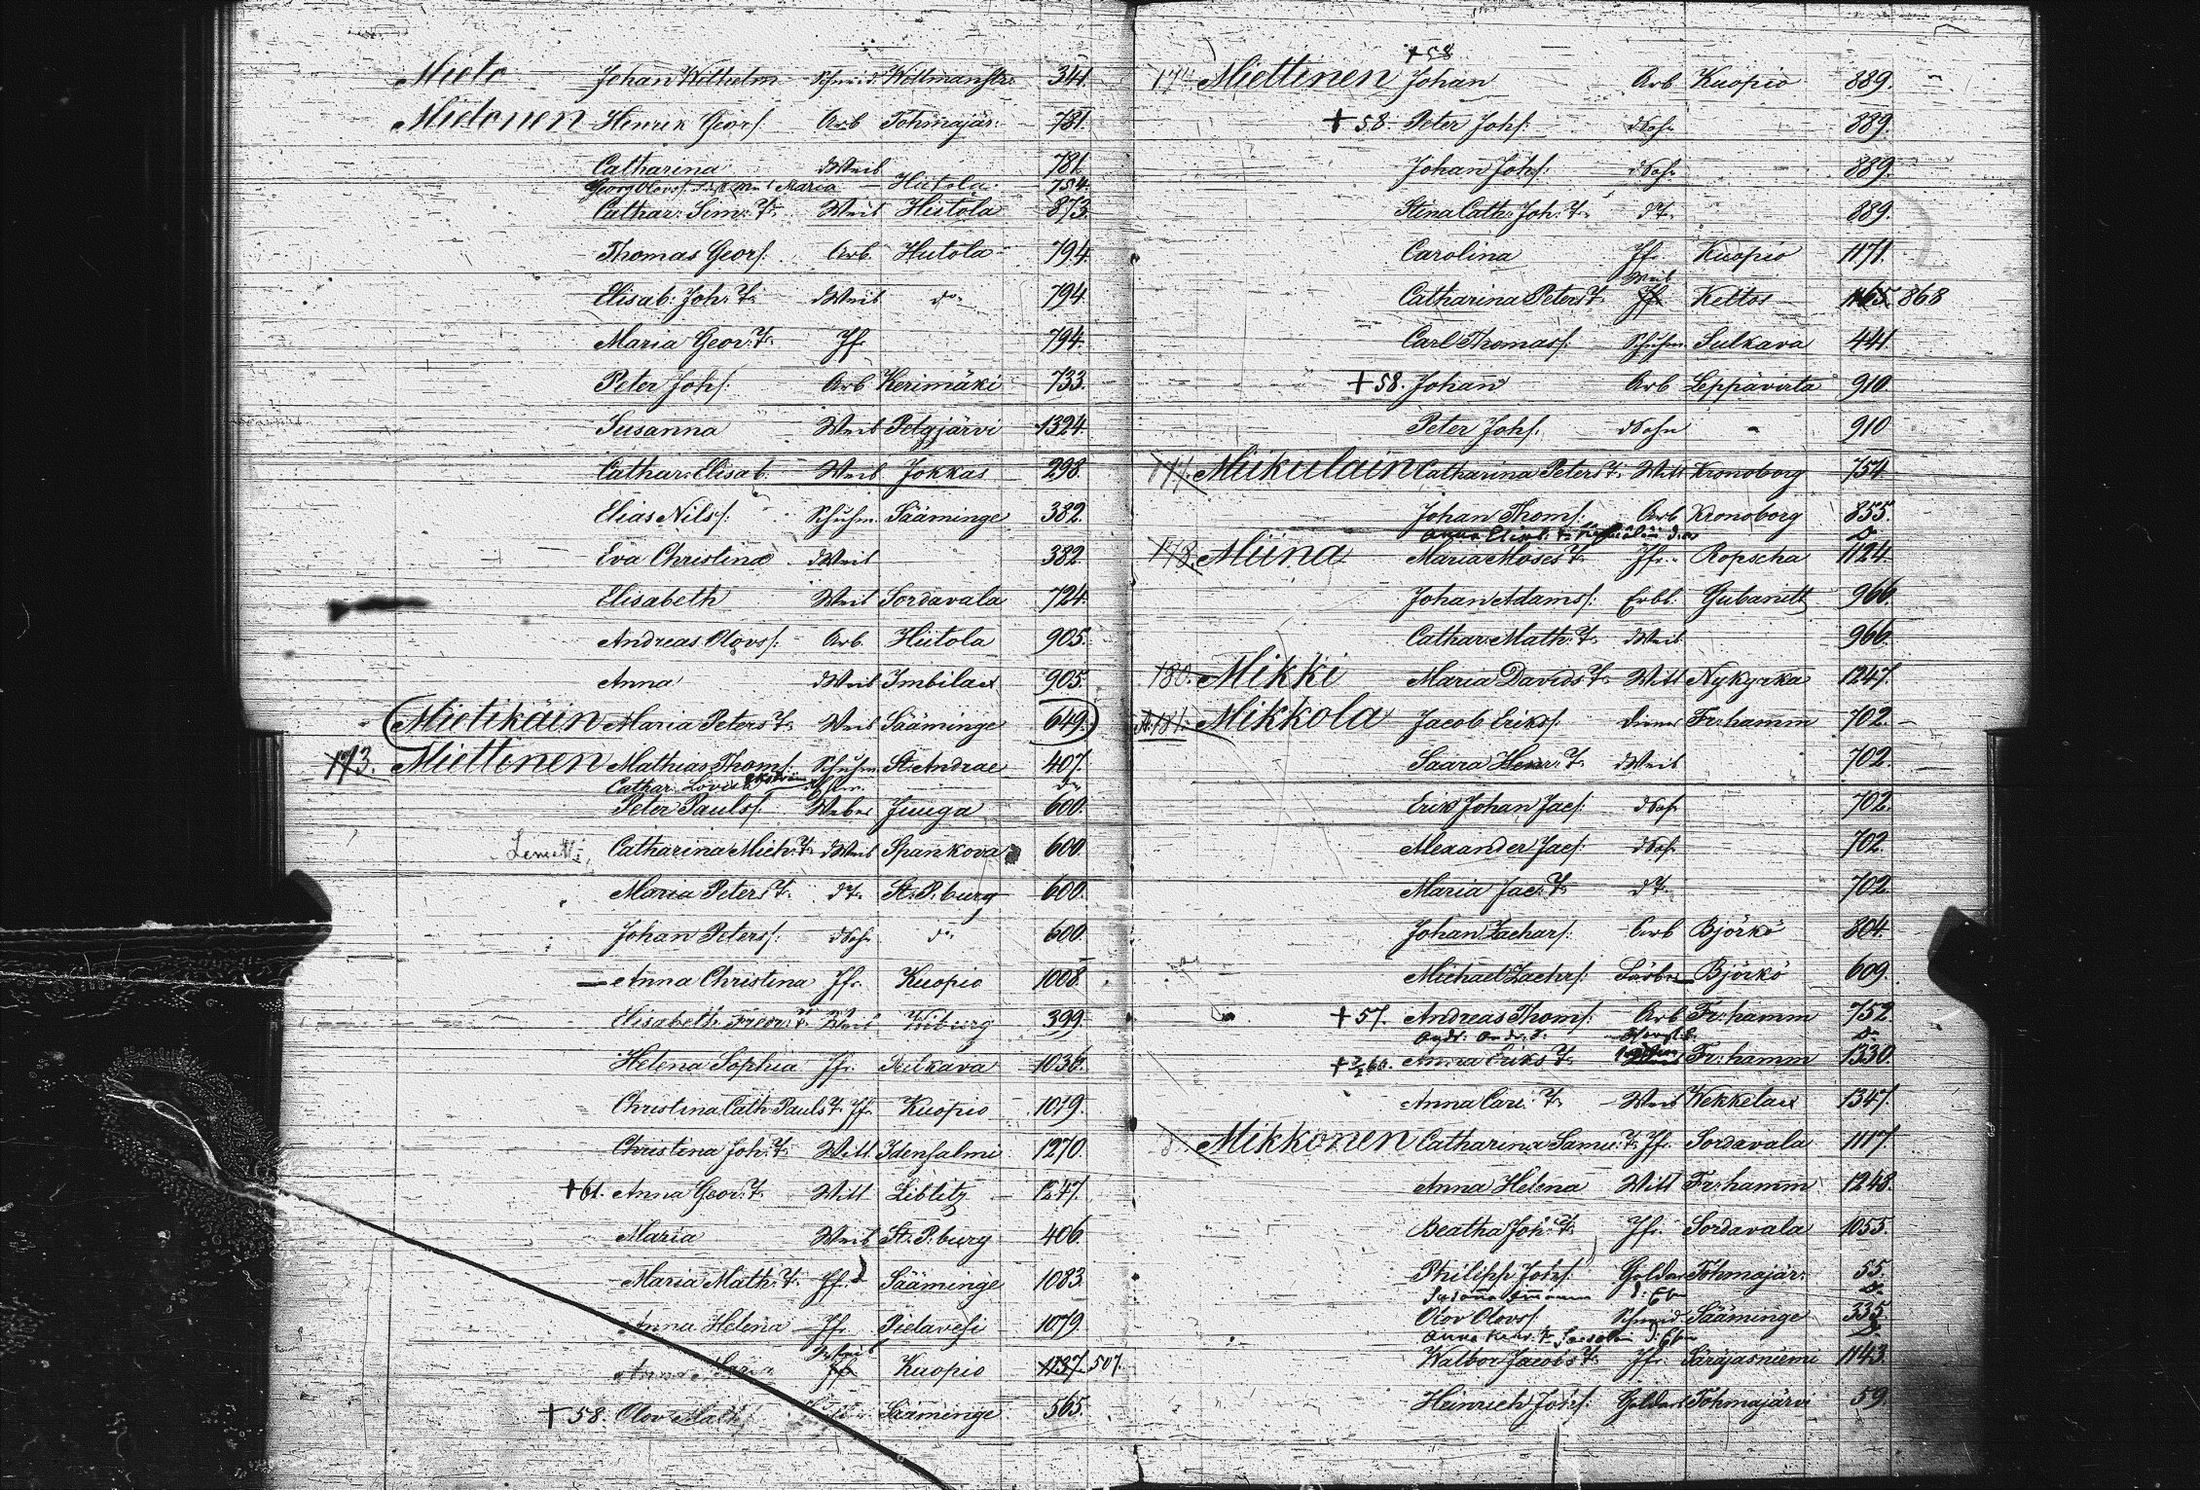 Mieto Johan Wilhelm Schmid. Willmanstr. 341.
Mietonen Henrik Geors/. Arb Tohmajär. 781.
Catharina dWeib 781.
Georg Olovs/. Maria Hiitola. 754.
Cathar. Sim. T. Weib Hiitola 873.
Thomas Geors/. Arb. Hiitola 794.
Elisab. Joh. T. dWeib do 794.
Maria Geor. T. Jfr. 794.
Peter Johs/. Arb Kerimäki 733.
Susanna Weib Pelgjärvi 1324.
Cathar. Elisab. Weib Jokkas 298.
Elias Nils/. Schuhm. Sääminge 382.
Eva Christina dWeib 382.
Elisabeth Weib Sordavala 724.
Andreas Olovs/. Arb. Hiitola 905.
Anna dWeib Imbilax 905.
Mietikäin Maria Peters T. Weib Sääminge 649.
173. Miettinen Mathias Thoms/. Schuhm. St. Andrae 407.
Cathar. Lovis do
Peter Pauls/. Weber Juuga 600.
Catharina Mich. T. dWeib Spankova 600.
Maria Peters T. dT. St. P. burg 600.
Johan Peters/. dSohn do 600.
Anna Christina Jfr. Kuopio 1008.
Elisabeth Fredr. T. Weib Wiburg 399.
Helena Sophia Jfr. Sulkava 1036.
Christina Cath. Pauls T. Jfr. Kuopio 1019.
Christina Joh. T. Witt Idensalmi 1270.
+61. Anna Geor. T. Witt Libelitz 1247.
Maria Weib St. P. burg 406.
Maria Math. T. Jfr. Sääminge 1083.
Anna Helena Jfr. Pielavesi 1079.
Anna Maria Jfr Kuopio 1137 507.
+58. Olov Maths/. Sääminge 565.
+58
174. Miettinen Johan Arb Kuopio 889.
+58. Peter Johs/. dSohn 889.
Johan Johs/. dSohn 889.
Stina Cath. Joh. T. dT. 889.
Carolina Jfr. Kuopio 1171.
Weib
Catharina Peters T. Jfr. Keltos 1165 868
Carl Thomas/. Schuhm. Sulkava 441.
+58. Johan Arb Leppävirta 910.
Peter Johs/. dSohn 910
177. Miikulain Catharina Peters T. Witt Kronoborg 754.
Johan Thoms/. Arb Kronoborg 855.
178. Miina Maria Moses T. Jfr. Ropscha 1124.
Johan Adams/. Erbl. Gubanitz 966.
Cathar. Math. T. dWeib 966.
180. Mikki Maria Davids T. Witt Nykyrka 1247.
181. Mikkola Jacob Eriks/. Diener Fr. hamm 702.
Saara Henr. T. dWeib 702.
Erik Johan Jacs/. dSohn 702.
Alexander Jacs/. dSohn 702.
Maria Jac. T. dT. 702.
Johan Zachars/. Arb Björkö 804.
Michael Zachrs/. Färber Björkö 609.
+57. Andreas Thoms/. Arb Fr. hamm 752.
+60. Anna Eriks T. Fr. hamm 1330.
Anna Carl. T. Weib Wekkelax 1347.
Mikkonen Catharina Samu. T. Jfr. Sordavala 1117.
Anna Helena Witt Fr. hamm 1248.
Beatha Joh. T. Jfr. Sordavala 1055.
Philipp Johs/. Goldar Tohmajär. 55.
Olov Olovs/. Schmid Sääminge 335.
Walbor Jacobs T. Jfr. Säräjasniemi 1143.
Heinrich Johs/. Goldarb Tohmajärvi 59.